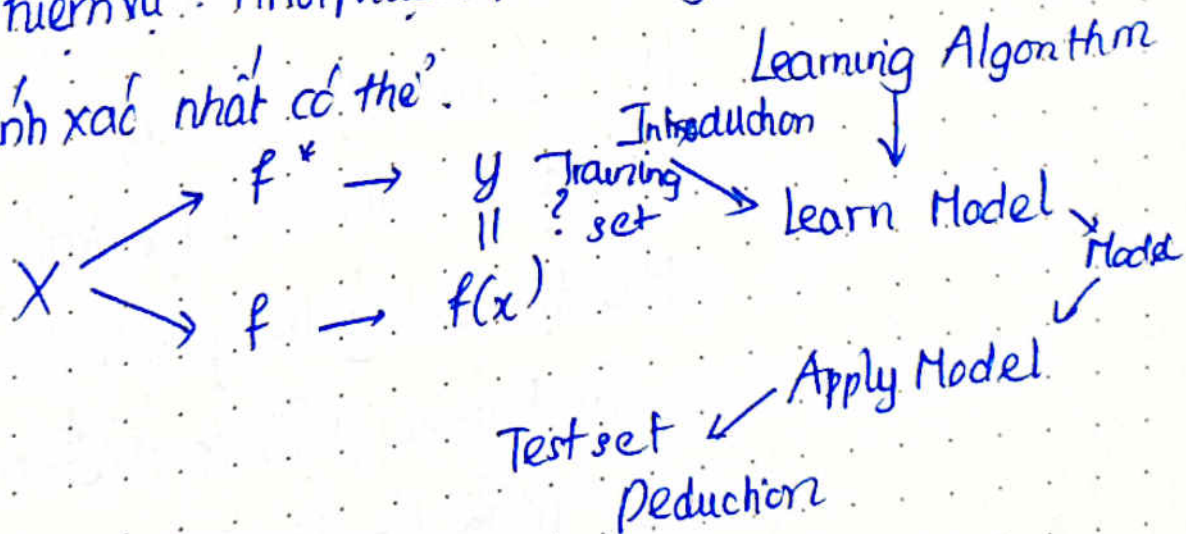 ính xác nhất có thể.
Learning Algorithm
Introduction
f* → y
Training set
Learn Model
Model
X
||
?
f → f(x)
Apply Model
Test set
Deduction